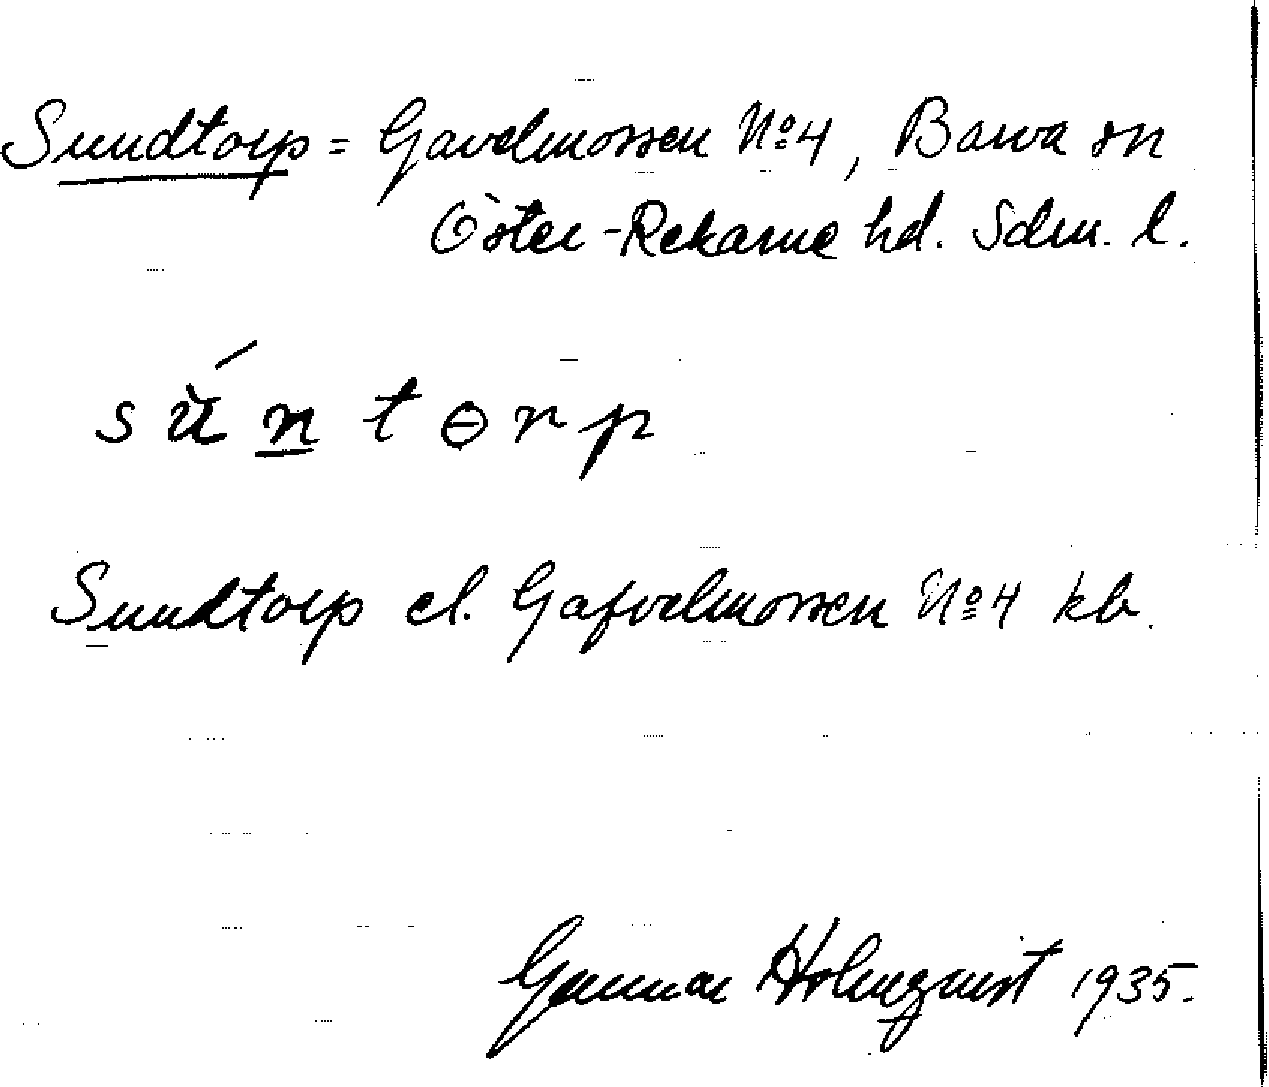 Sundtorp = Gavelmossen No 4, Barva sn
Öster-Rekarne hd. Sdm. l.
sŭ́n̲tɵrp
Sundtorp el. Gafvelmossen No 4 kb.
Gunnar Holmqvist 1935.